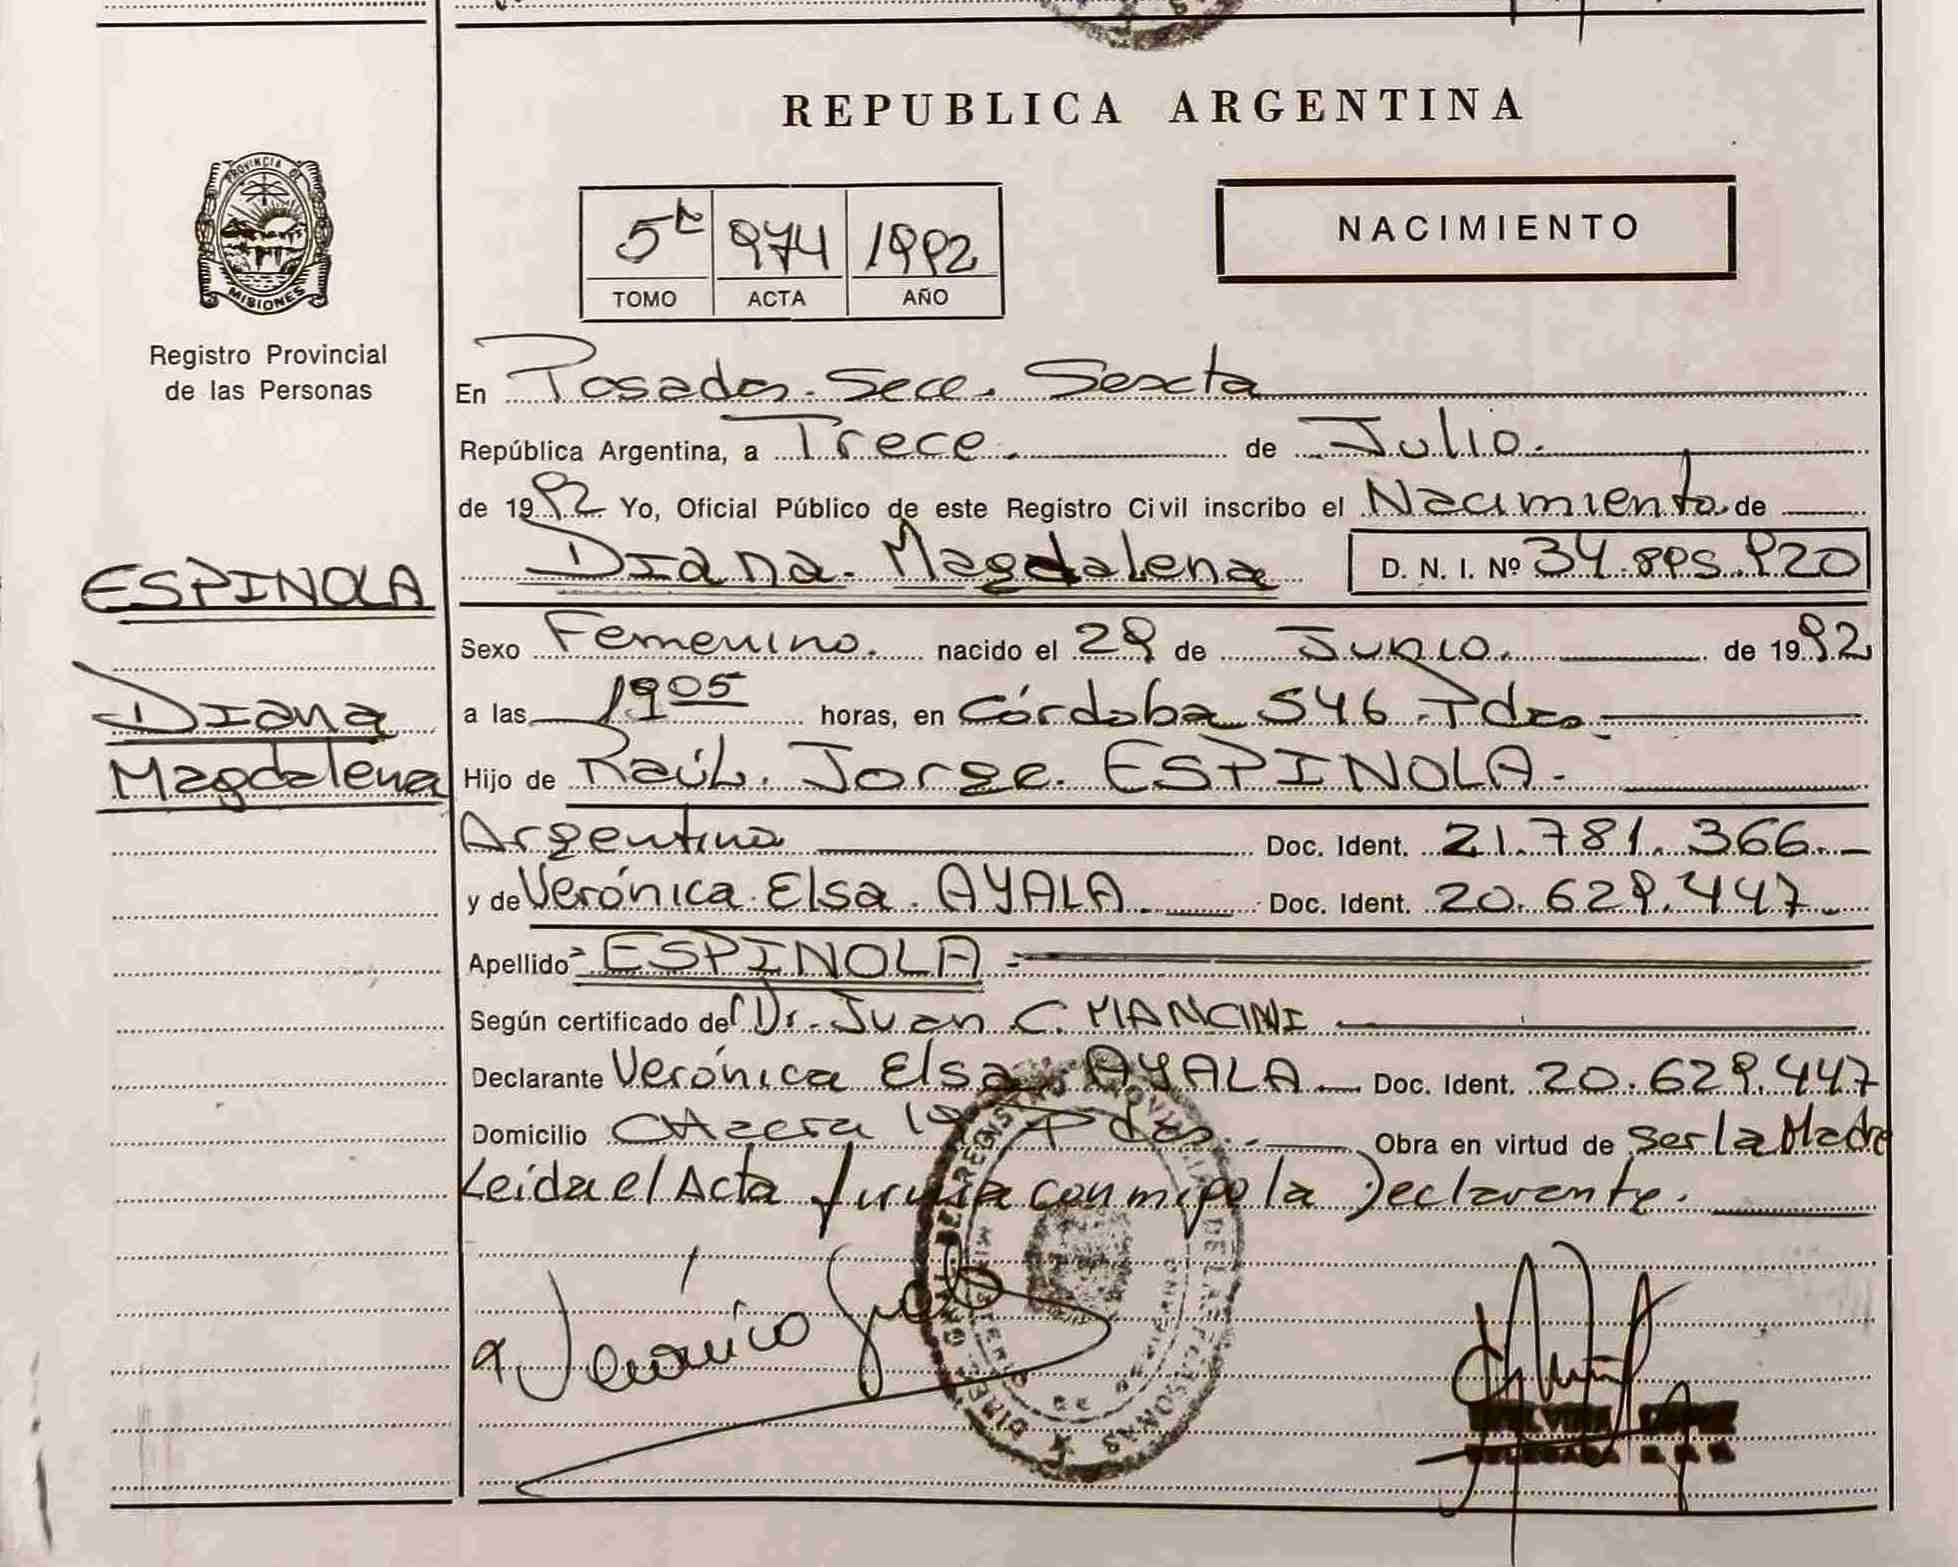 REPUBLICA ARGENTINA
PROVINCIA DE
MISIONES
Registro Provincial
de las Personas
NACIMIENTO
974 1992
TOMO ACTA AÑO
En Posadas. Secc. Sexta
República Argentina, a Trece. de Julio.
de 1992 Yo, Oficial Público de este Registro Civil inscribo el Nacimiento de
Diana Magdalena D. N. I. Nº 34.895.920
ESPINOLA
Diana
Magdalena
Sexo Femenino. nacido el 29 de Junio. de 1992
a las 19 05 horas, en Córdoba 546 Pdas.
Hijo de Raúl Jorge ESPINOLA.
Argentina Doc. Ident. 21.781.366
y de Verónica Elsa AYALA Doc. Ident. 20.629.447
Apellido ESPINOLA
Según certificado de Dr. Juan C. MANCINI
Declarante Verónica Elsa AYALA Doc. Ident. 20.629.447
Domicilio Pdas. Obra en virtud de ser la Madre
Leída el Acta firma conmigo la Declarante.
Verónica